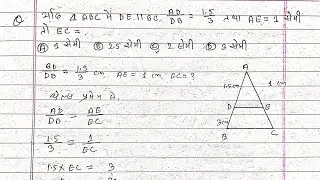 Q यदि △ ABC में DE || BC. AD/DB = 1.5/3 तथा AE = 1 सेमी
तो EC = .
(A) 1 सेमी (B) 2.5 सेमी (C) 2 सेमी (D) 3 सेमी
BD/DB = 1.5/3 cm, AE = 1 cm, EC = ?
प्रमेय से
AD/DB = AE/EC
1.5/3 = 1/EC
1.5 x EC = 3
A
1.5cm 1 cm
D E
3cm
B C